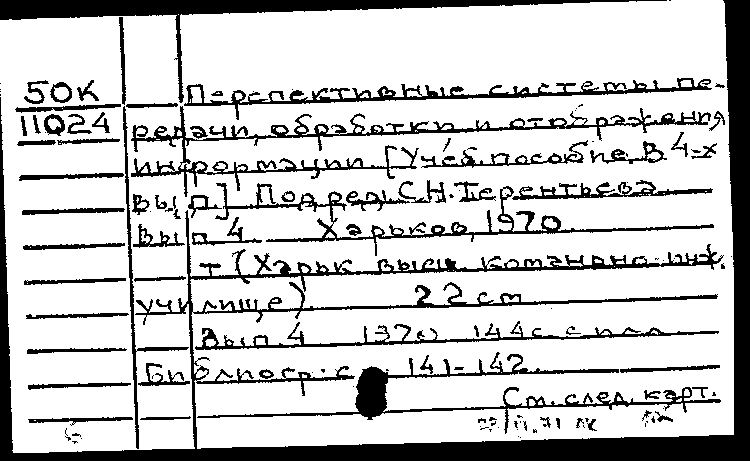 50К Перспективные системы пе-
11024 редачи, обработки и отображения
информации. [Учеб. пособие. В 4-х
вып.] Под ред. С.Н. Терентьева.
Вып. 4. Харьков, 1970.
т (Харьк. высш. командно-инж.
училище) 22 см
Вып. 4 1970 144 с. с илл.
Библиогр.: с. 141-142.
См. след. карт.
6